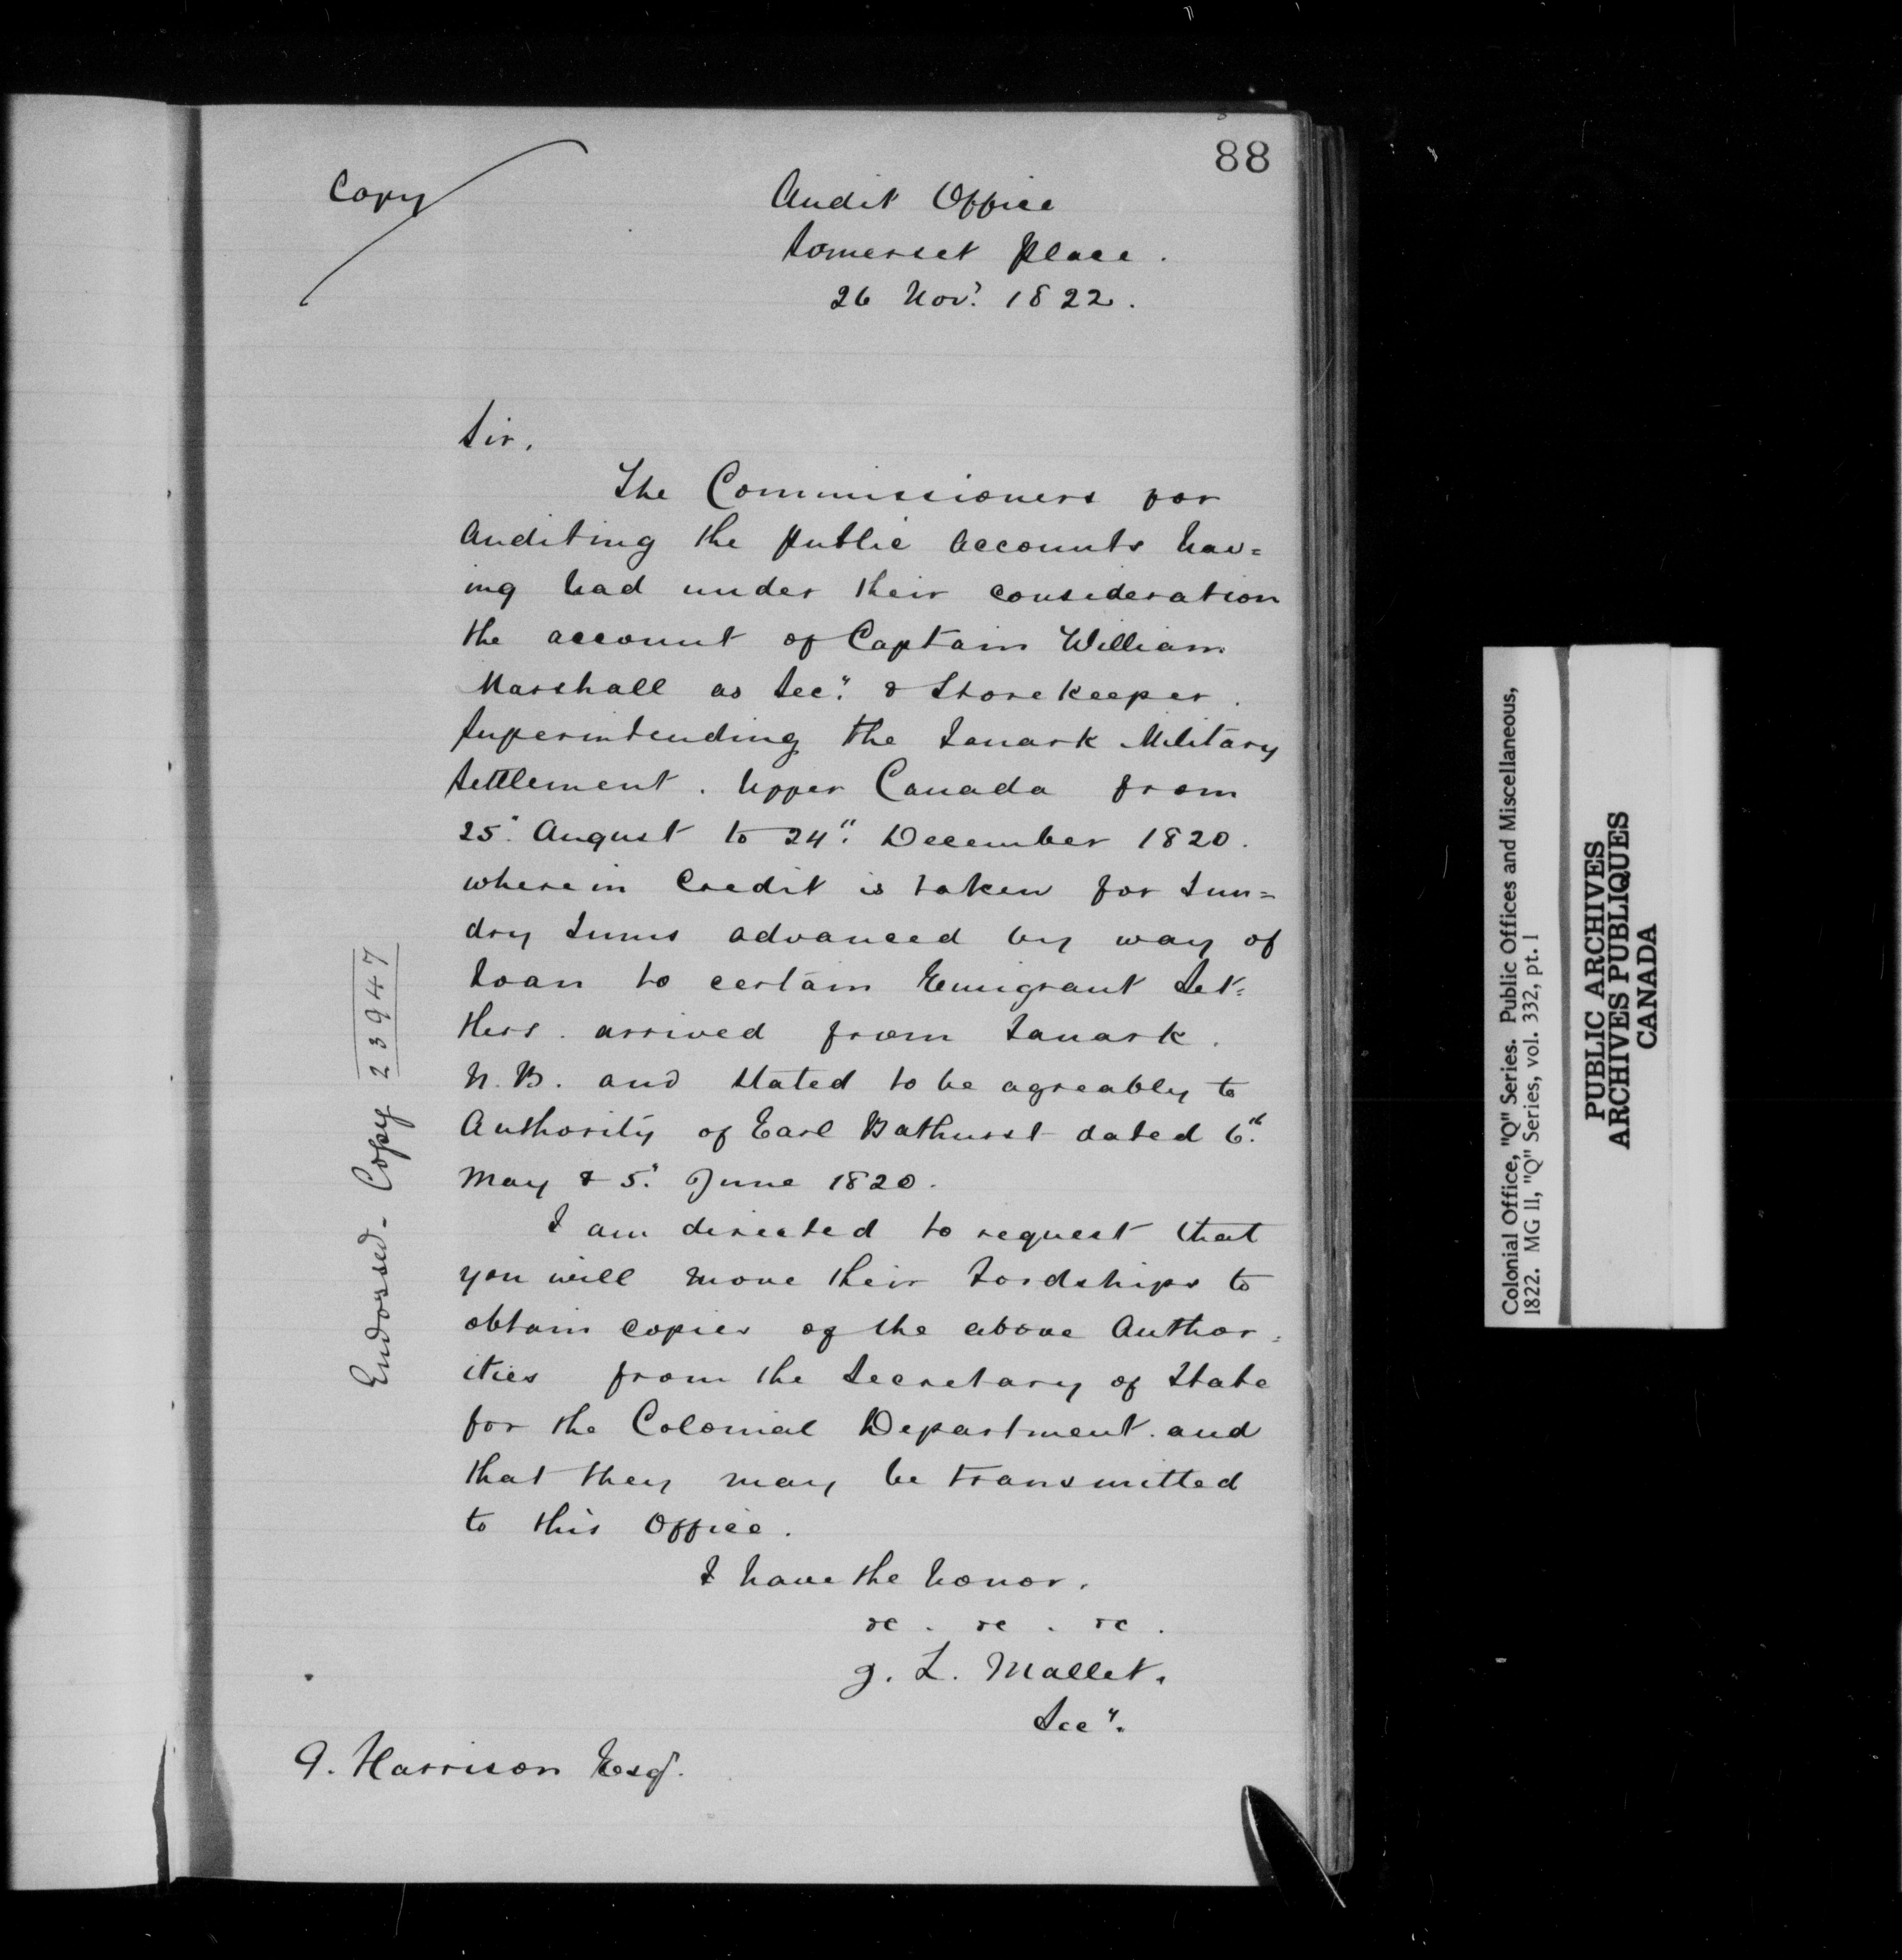 88
Copy
Audit Office
Somerset Place.
26 Nov.r 1822.
Sir,
The Commissioners for
Auditing the public Accounts hav=
ing had under their consideration
the account of Captain William
Marshall as Sec.y & Storekeeper.
Superintending the Lanark Military
Settlement. Upper Canada from
25." August to 24." December 1820.
wherein Credit is taken for Sun=
dry Sums advanced by way of
Loan to certain Emigrant Set=
tlers. arrived from Lanark.
N.B. and stated to be agreably to
Authority of Earl Bathurst dated 6.th
May & 5." June 1820.
I am directed to request that
you will move their Lordships to
obtain copies of the above Author=
ities from the Secretary of State
for the Colonial Department. and
that they may be transmitted
to this Office.
I have the honor.
&c. &c. &c.
J. L. Mallet.
Sec.y
G. Harrison Esq.
Endorsed - Copy 23947
Colonial Office, "Q" Series. Public Offices and Miscellaneous,
1822. MG 11, "Q" Series, vol. 332, pt. 1
PUBLIC ARCHIVES
ARCHIVES PUBLIQUES
CANADA